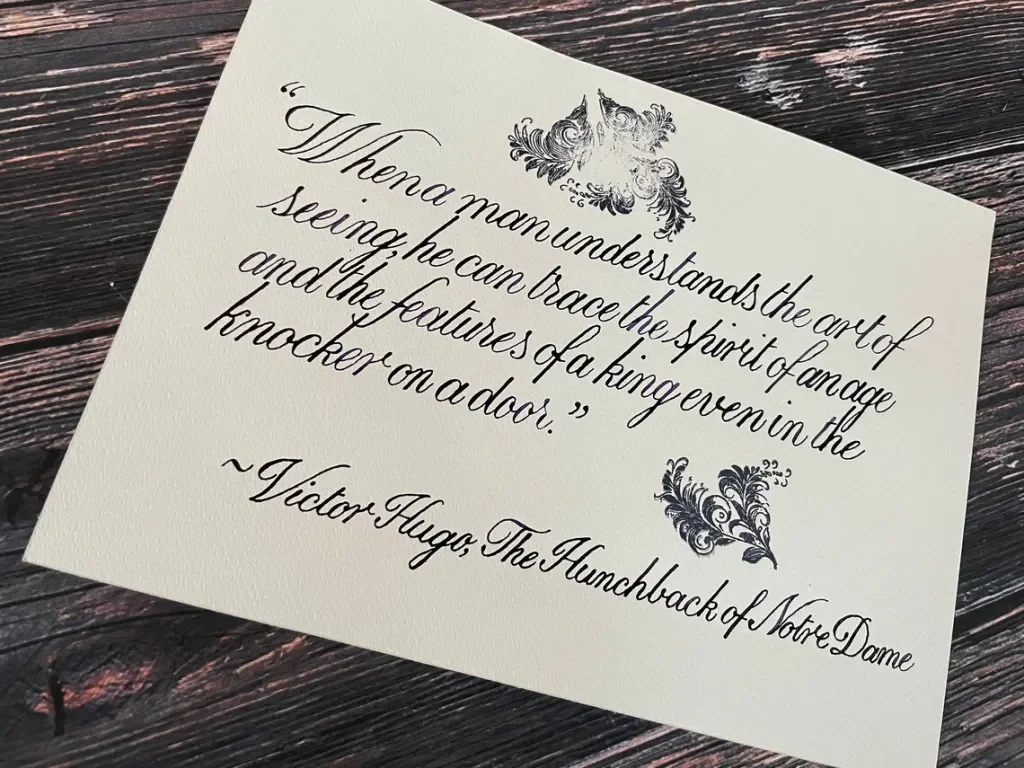 “When a man understands the art of
seeing, he can trace the spirit of an age
and the features of a king even in the
knocker on a door.”
~Victor Hugo, The Hunchback of Notre Dame